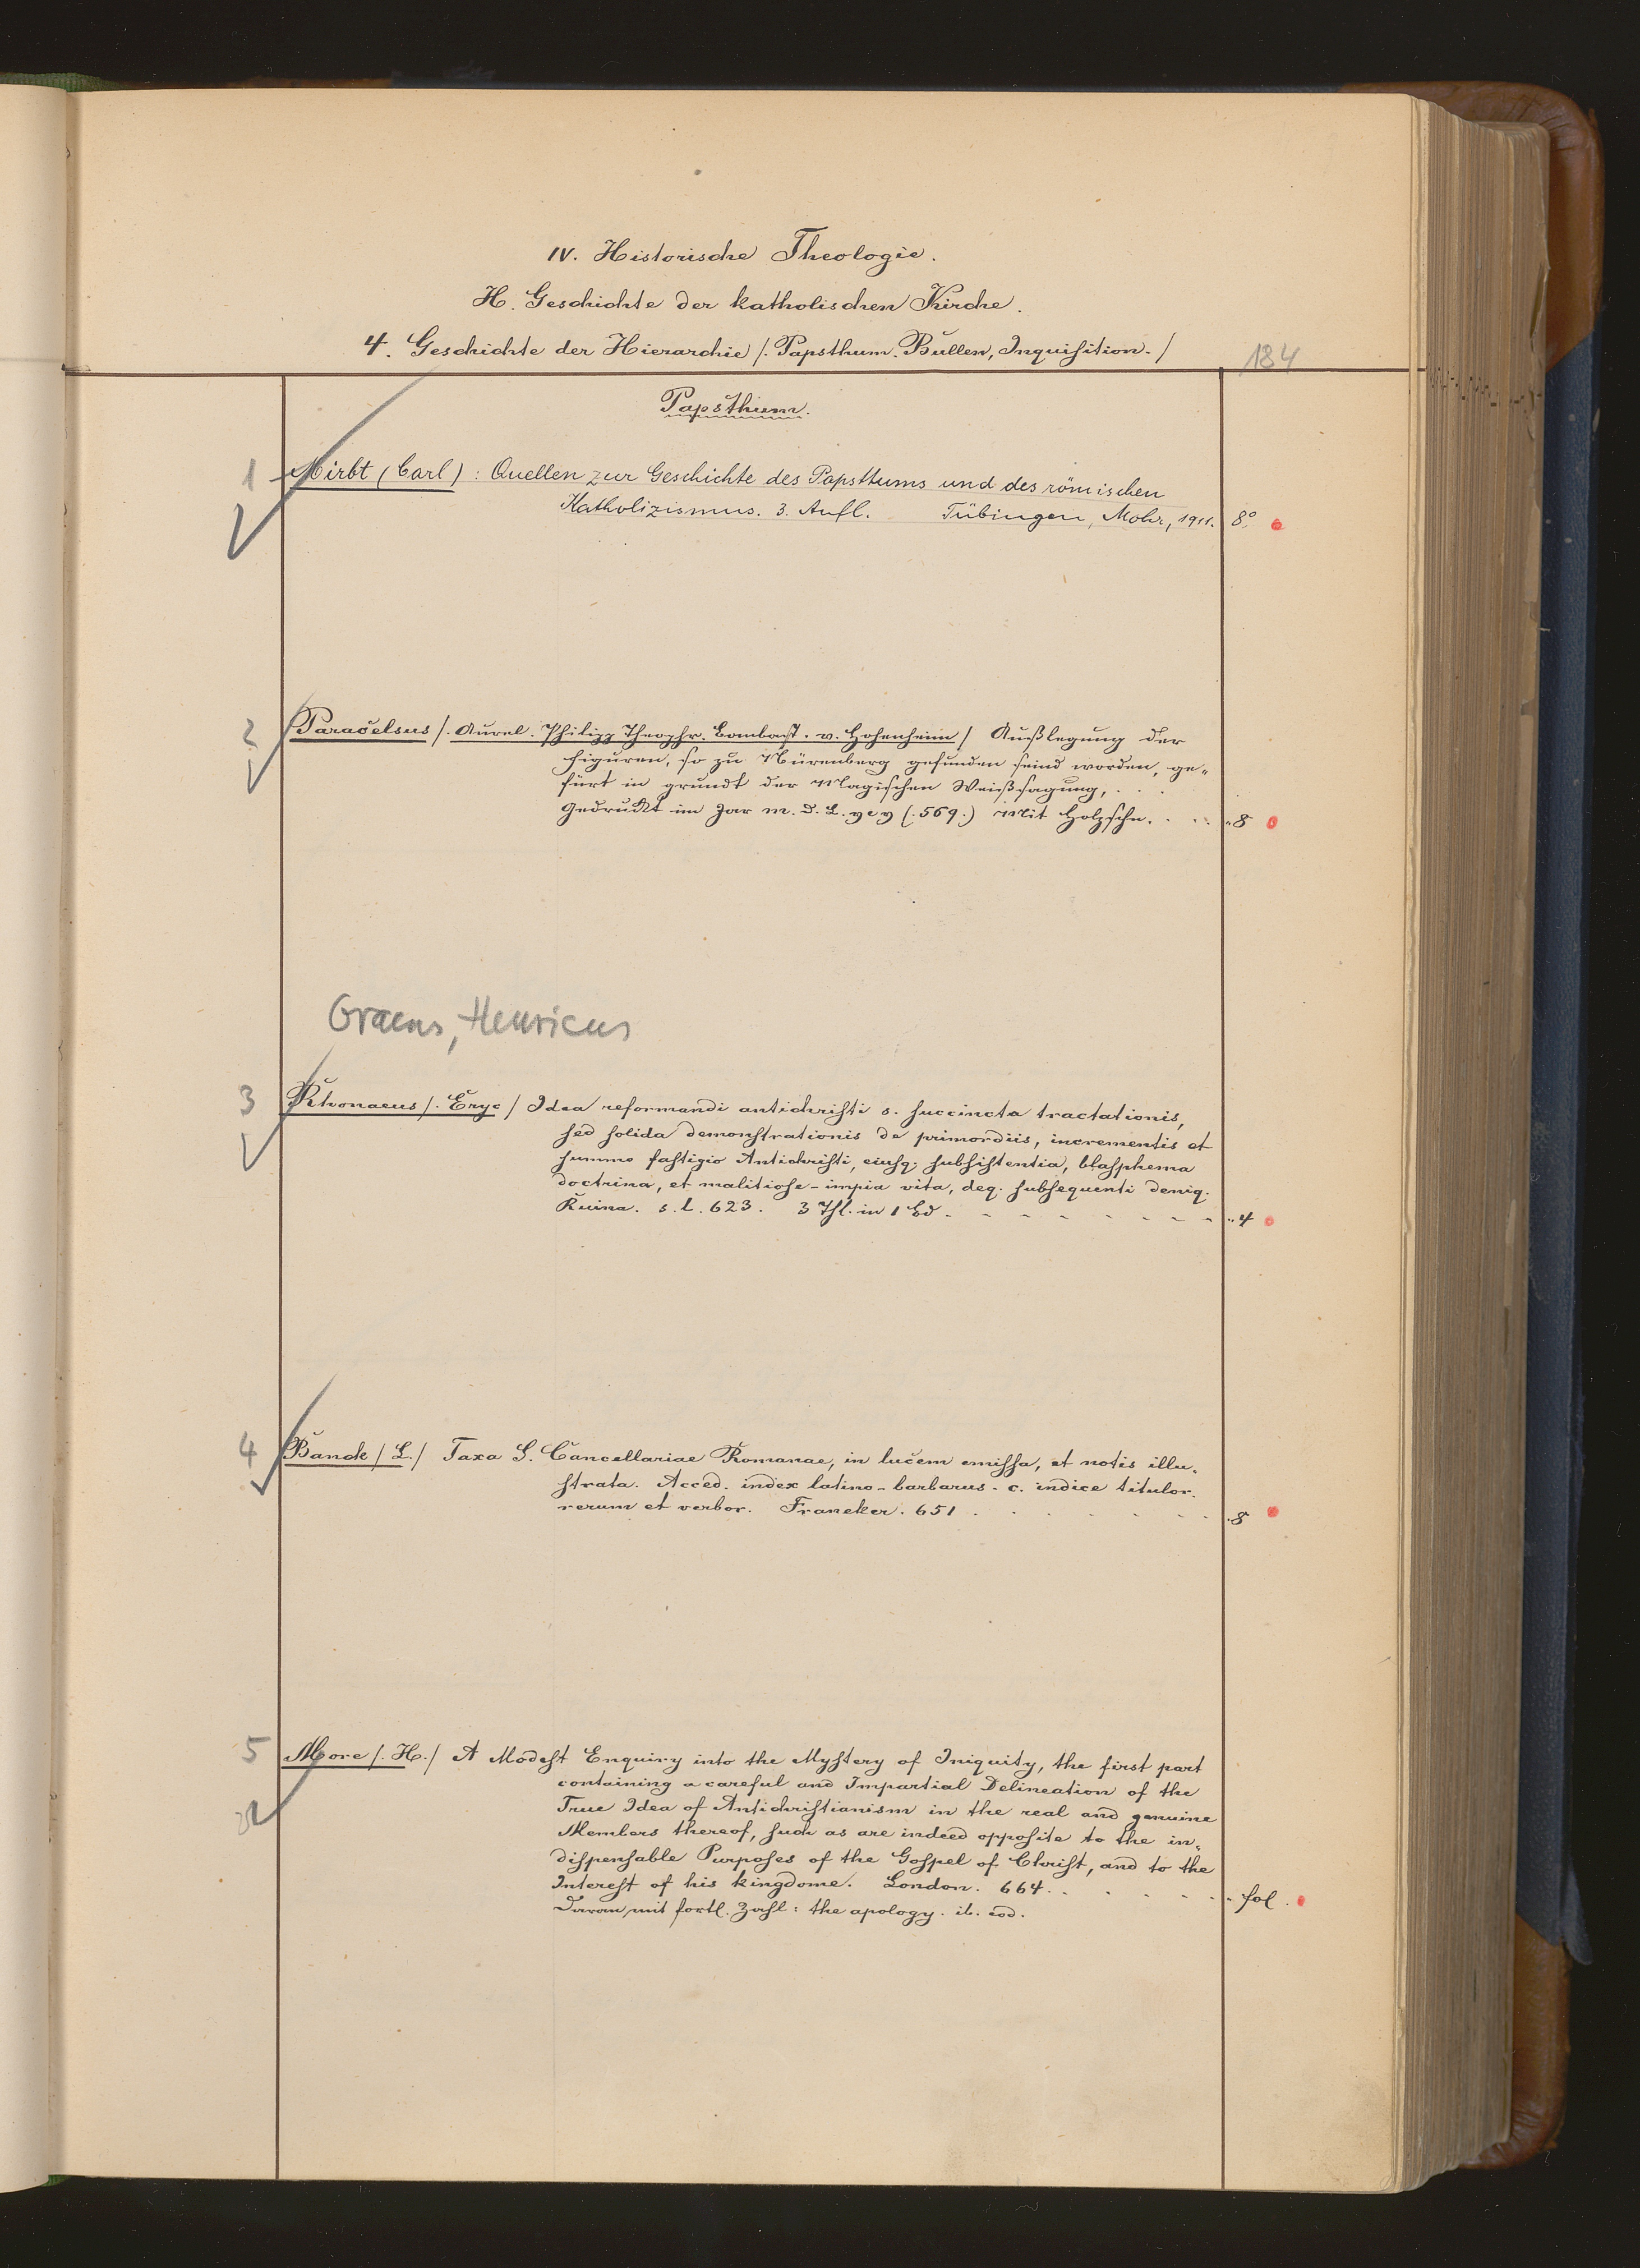 IV. Historische Theologie.
H. Geschichte der katholischen Kirche.
4. Geschichte der Hierarchie /. Papsthum. Bullen, Inquisition. /
184
Papsthum.
1 Mirbt (Carl) : Quellen zur Geschichte des Papsttums und des römischen
Katholizismus. 3. Aufl. Tübingen, Mohr, 1911. 8°
2 Paracelsus /. Aurel. Philipp Theophr. Bombast. v. Hohenheim / Außlegung der
Figuren, so zu Nürenberg gefunden seind worden, ge-
fürt in grundt der Magischen Weißsagung, . . .
Gedruckt im Jar m. D. L. (.569.) Mit Holzschn. . . . 8
Henricus
3 Rhonaeus /. Eryc / Idea reformandi antichristi s. succincta tractationis,
sed solida demonstrationis de primordiis, incrementis et
summo fastigio Antichristi, eiusq. subsistentia, blasphema
doctrina, et malitiose-impia vita, deq. subsequenti deniq.
Ruina. s. l. 623. 3 Thl. in 1 Bd. 4
4 Banck / L. / Taxa S. Cancellariae Romanae, in lucem emissa, et notis illu-
strata. Acced. index latino-barbarus. c. indice titulor.
rerum et verbor. Franeker. 651 . 8
5 More /. H. / A Modest Enquiry into the Mystery of Iniquity, the first part
containing a careful and Impartial Delineation of the
True Idea of Antichristianism in the real and genuine
Members thereof, such as are indeed opposite to the in-
dispensable Purposes of the Gospel of Christ, and to the
Interest of his kingdome. London. 664. fol.
Daran mit fortl. Zahl : the apology. ib. eod.